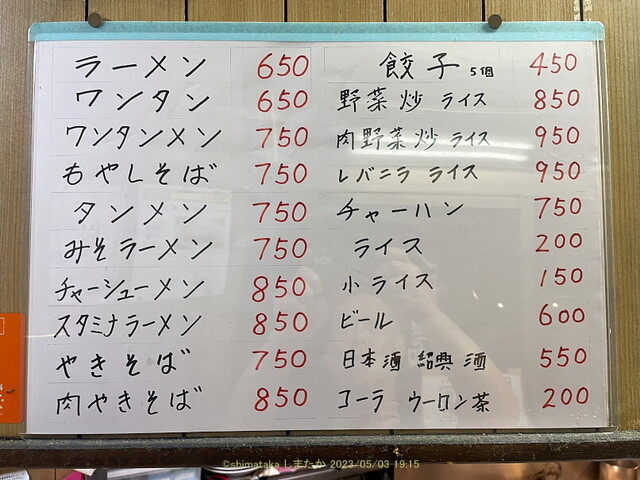 ラーメン 650
ワンタン 650
ワンタンメン 750
もやしそば 750
タンメン 750
みそラーメン 750
チャーシューメン 850
スタミナラーメン 850
やきそば 750
肉やきそば 850
餃子 5個 450
野菜炒 ライス 850
肉野菜炒 ライス 950
レバニラ ライス 950
チャーハン 750
ライス 200
小ライス 150
ビール 600
日本酒 紹興酒 550
コーラ ウーロン茶 200
©shimataka しまたか 2023/05/03 19:15